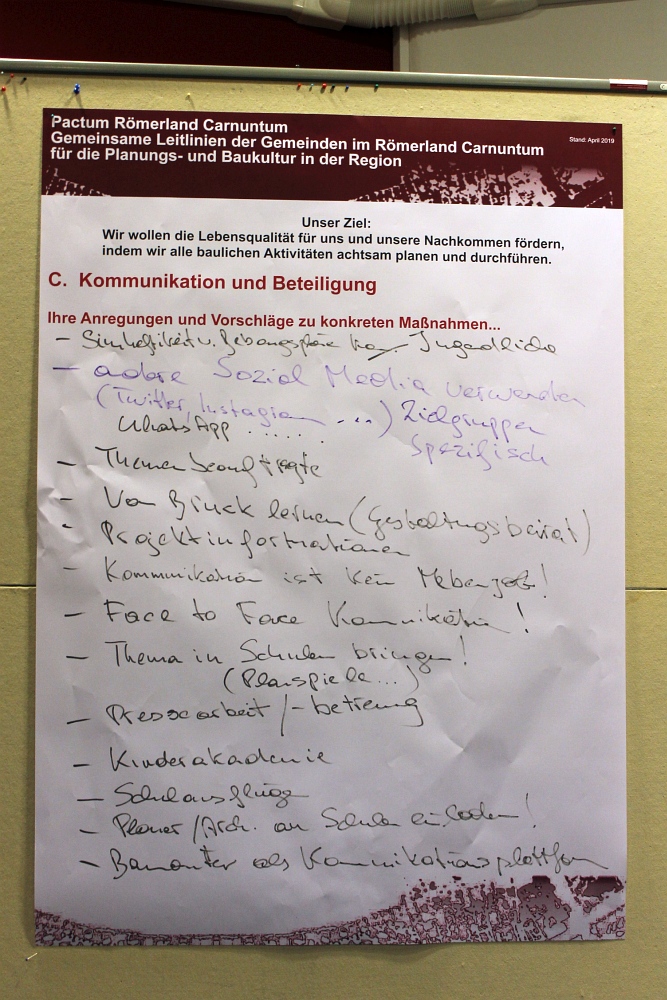 Pactum Römerland Carnuntum
Gemeinsame Leitlinien der Gemeinden im Römerland Carnuntum
für die Planungs- und Baukultur in der Region
Stand: April 2019
Unser Ziel:
Wir wollen die Lebensqualität für uns und unsere Nachkommen fördern,
indem wir alle baulichen Aktivitäten achtsam planen und durchführen.
C. Kommunikation und Beteiligung
Ihre Anregungen und Vorschläge zu konkreten Maßnahmen...
- Jugendliche
- andere Sozial Media verwenden
(Twitter, Instagram ...) Zielgruppen
WhatsApp ...... Spezifisch
- Themenbeauftragte
- Von Bruck lernen (Gestaltungsbeirat)
- Projektinformationen
- Kommunikation ist kein Nebenjob!
- Face to Face Kommunikation!
- Thema in Schulen bringen!
(Planspiele...)
- Pressearbeit/-betreuung
- Kinderakademie
- Schulausflüge
- Planer/Arch. an Schulen einladen!
- Bauamter als Kommunikationsplattform